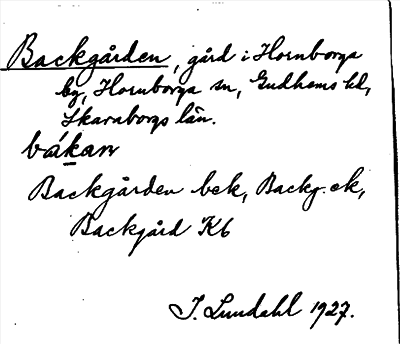 Backgården, gård i Hornborga
by, Hornborga sn, Gudhems hd,
Skaraborgs län.
bákan
Backgården bek, Backg. ek,
Backgård Kb
I. Lundahl 1927.